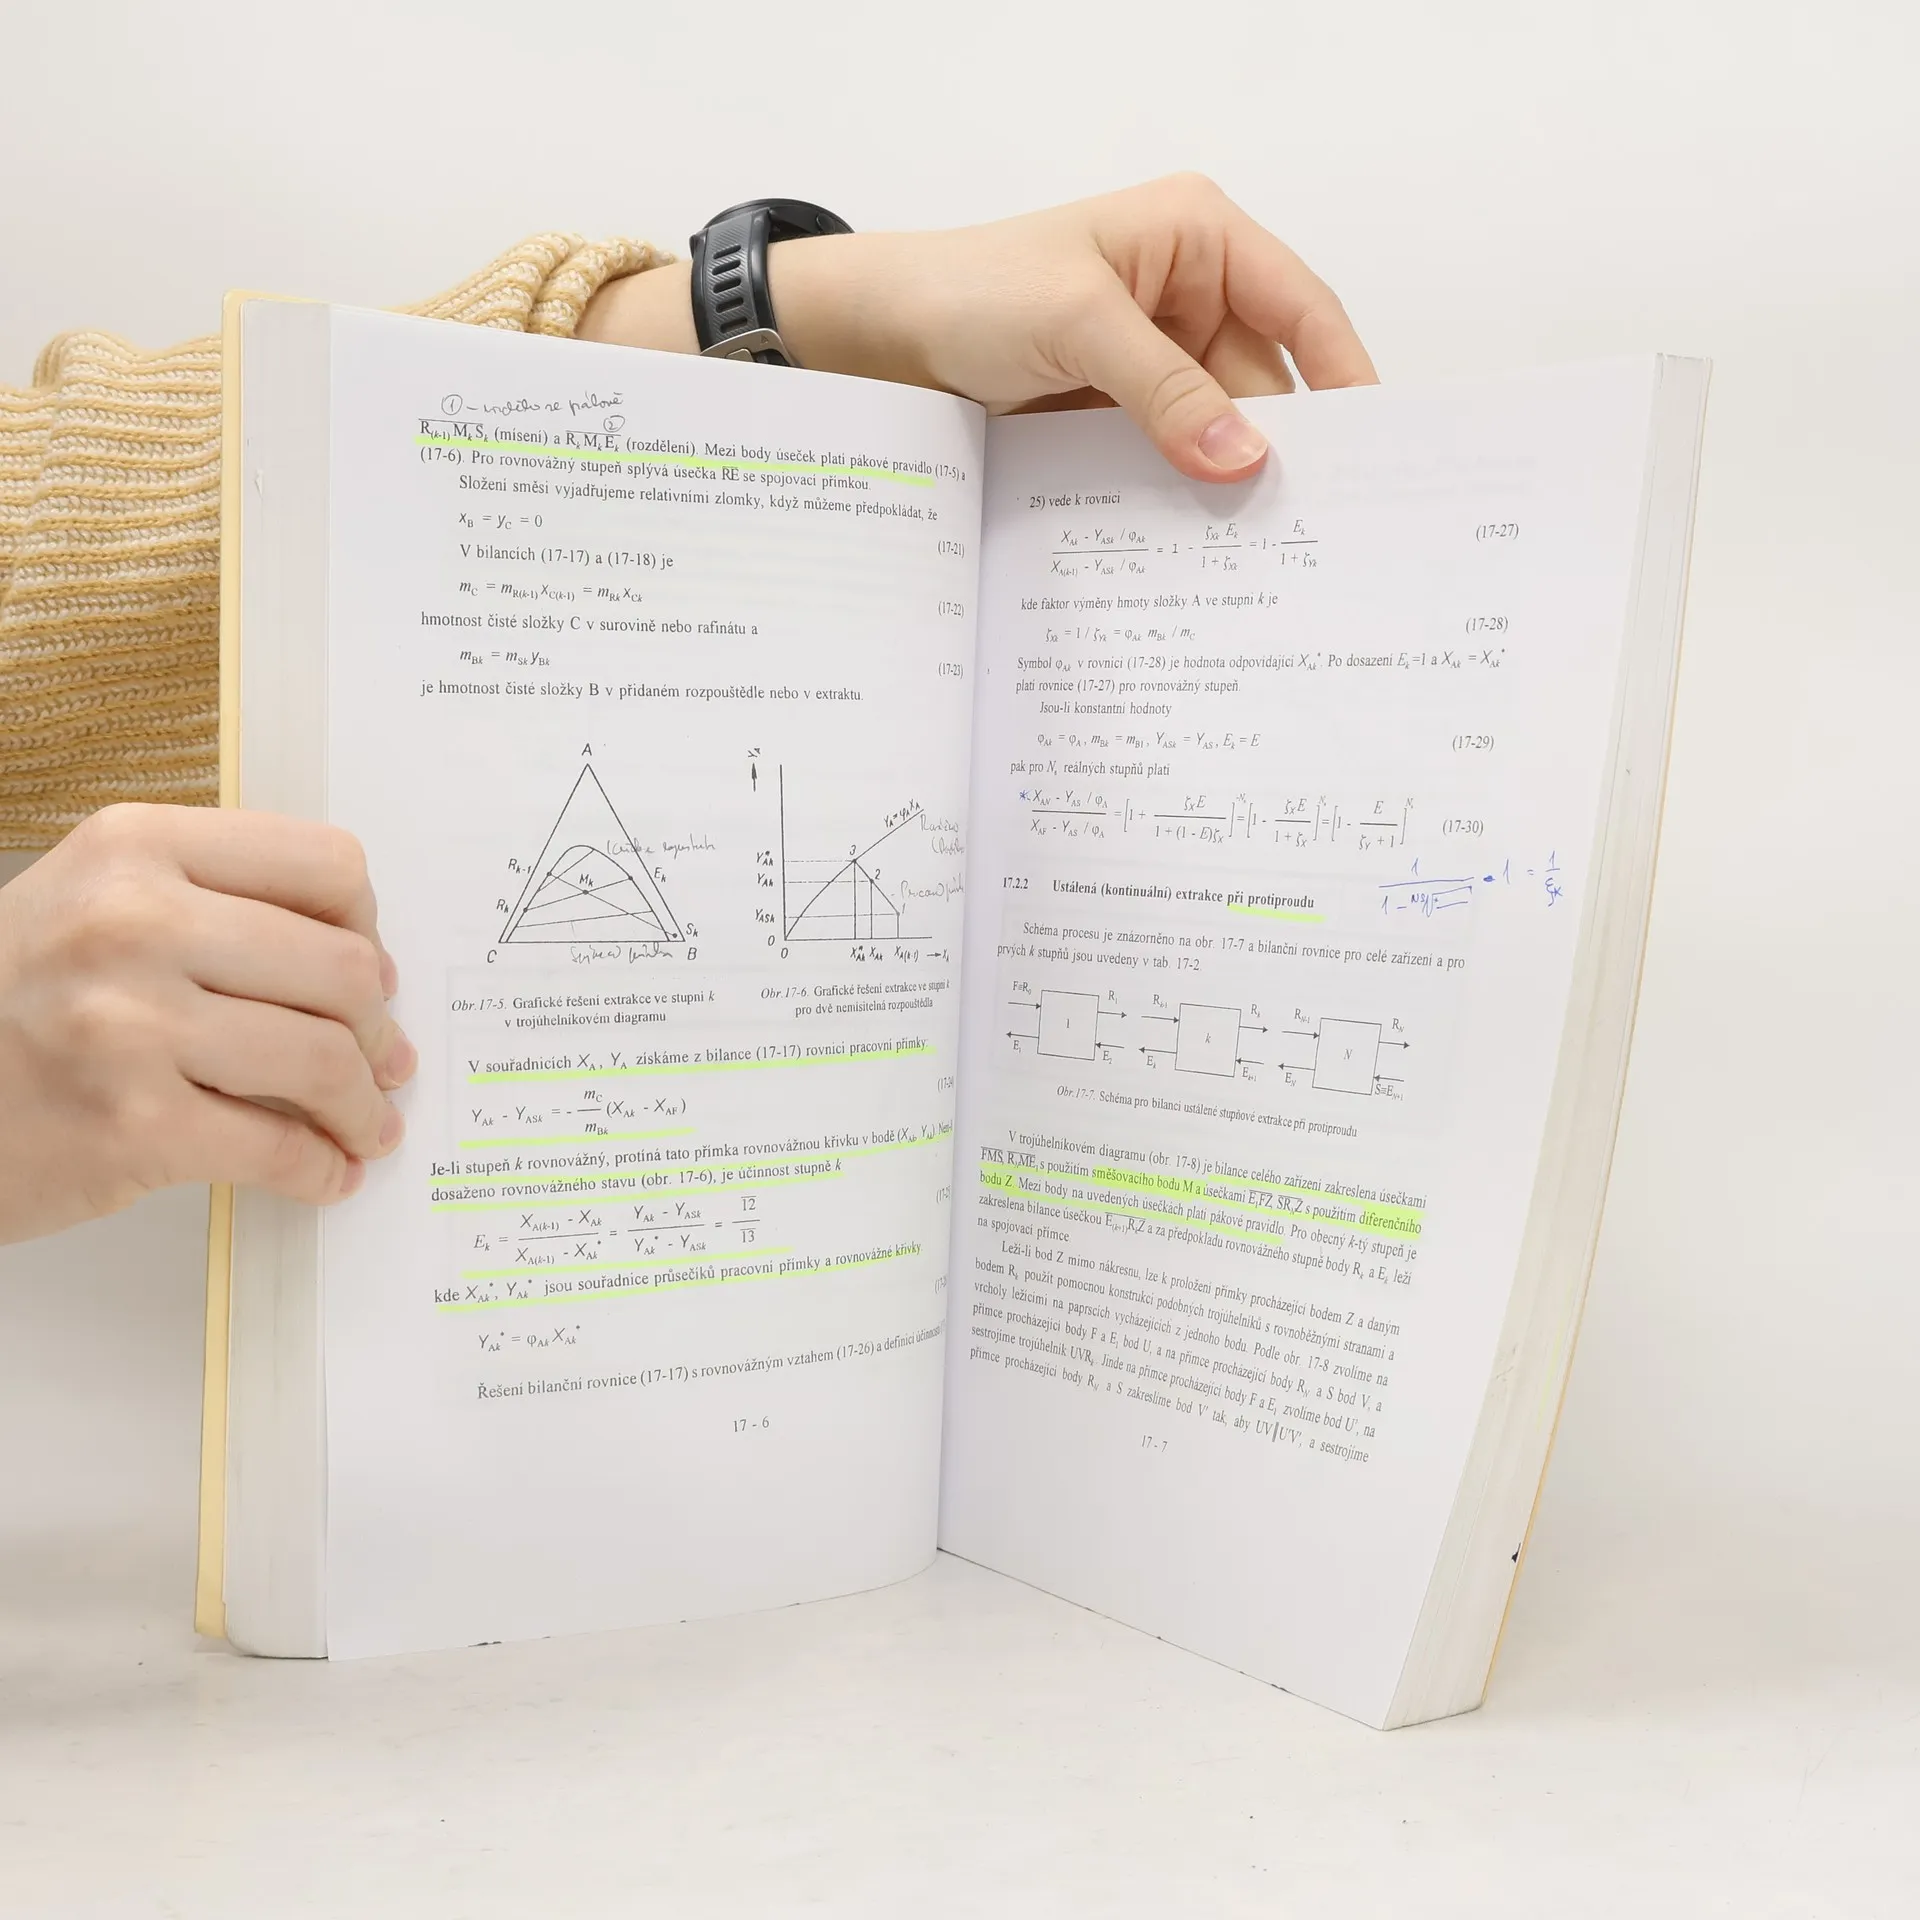 ①
②
R(k-1) Mk Sk (mísení) a Rk Mk Ek (rozdělení). Mezi body úseček platí pákové pravidlo (17-5) a
(17-6). Pro rovnovážný stupeň splývá úsečka RE se spojovací přímkou.
Složení směsi vyjadřujeme relativními zlomky, když můžeme předpokládat, že
xB = yC = 0 (17-21)
V bilancích (17-17) a (17-18) je
mC = mR(k-1) xC(k-1) = mRk xCk (17-22)
hmotnost čisté složky C v surovině nebo rafinátu a
mBk = mSk yBk (17-23)
je hmotnost čisté složky B v přidaném rozpouštědle nebo v extraktu.
A
Rk-1
Mk
Ek
Rk
Sk
C
B
YA = φA XA
3
Y*Ak
YAk
2
1
YASk
0
0 X*Ak XAk XA(k-1) → XA
Obr.17-5. Grafické řešení extrakce ve stupni k
v trojúhelníkovém diagramu
Obr.17-6. Grafické řešení extrakce ve stupni k
pro dvě nemísitelná rozpouštědla
V souřadnicích XA, YA získáme z bilance (17-17) rovnici pracovní přímky:
YAk - YASk = - mC / mBk (XAk - XAF) (17-24
Je-li stupeň k rovnovážný, protíná tato přímka rovnovážnou křivku v bodě (XAk, YAk). Není-l
dosaženo rovnovážného stavu (obr. 17-6), je účinnost stupně k
Ek = XA(k-1) - XAk / XA(k-1) - XAk* = YAk - YASk / YAk* - YASk = 12 / 13 (17-25
kde XAk*, YAk* jsou souřadnice průsečíků pracovní přímky a rovnovážné křivky
YAk* = φAk XAk* (17-26
Řešení bilanční rovnice (17-17) s rovnovážným vztahem (17-26) a definicí účinnosti
17 - 6
25) vede k rovnici
XAk - YASk / φAk / XA(k-1) - YASk / φAk = 1 - ζXk Ek / 1 + ζXk = 1 - Ek / 1 + ζYk (17-27)
kde faktor výměny hmoty složky A ve stupni k je
ζXk = 1 / ζYk = φAk mBk / mC (17-28)
Symbol φAk v rovnici (17-28) je hodnota odpovídající XAk*. Po dosazení Ek =1 a XAk = XAk*
platí rovnice (17-27) pro rovnovážný stupeň.
Jsou-li konstantní hodnoty
φAk = φA, mBk = mB1, YASk = YAS, Ek = E (17-29)
pak pro Ns reálných stupňů platí
* XAN - YAS / φA / XAF - YAS / φA = [1 + ζX E / 1 + (1 - E)ζX]^-Ns = [1 - ζX E / 1 + ζX]^Ns = [1 - E / ζY + 1]^Ns (17-30)
17.2.2 Ustálená (kontinuální) extrakce při protiproudu
Schéma procesu je znázorněno na obr. 17-7 a bilanční rovnice pro celé zařízení a pro
prvých k stupňů jsou uvedeny v tab. 17-2.
F≡R0 R1 Rk-1 Rk RN-1 RN
1 k N
E1 E2 Ek Ek+1 EN S≡EN+1
Obr.17-7. Schéma pro bilanci ustálené stupňové extrakce při protiproudu
V trojúhelníkovém diagramu (obr. 17-8) je bilance celého zařízení zakreslena úsečkami
FMS, RNME1 s použitím směšovacího bodu M a úsečkami E1FZ, SRNZ s použitím diferenčního
bodu Z. Mezi body na uvedených úsečkách platí pákové pravidlo. Pro obecný k-tý stupeň je
zakreslena bilance úsečkou E(k+1)RkZ a za předpokladu rovnovážného stupně body Rk a Ek leží
na spojovací přímce
Leží-li bod Z mimo nákresnu, lze k proložení přímky procházející bodem Z a daným
bodem Rk použít pomocnou konstrukci podobných trojúhelníků s rovnoběžnými stranami a
vrcholy ležícími na paprscích vycházejících z jednoho bodu. Podle obr. 17-8 zvolíme na
přímce procházející body F a E1 bod U, a na přímce procházející body RN a S bod V, a
sestrojíme trojúhelník UVRk. Jinde na přímce procházející body F a E1 zvolíme bod U', na
přímce procházející body RN a S zakreslíme bod V' tak, aby UV∥U'V', a sestrojíme
17 - 7